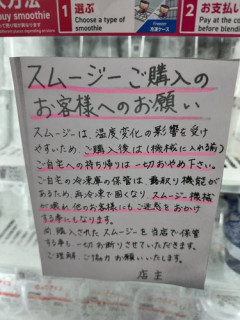 入方法
buy smoothie
1
選ぶ
Choose a type of
smoothie
Freezer
冷凍ケース
2
お支払い
Pay at the co
スムージーご購入の
お客様へのお願い
スムージーは、温度変化の影響を受け
やすいため、ご購入後は(機械に入れる前)
ご自宅への持ち帰りは一切おやめ下さい。
ご自宅の冷凍庫の保管は、霜取り機能が
あるため、再冷凍で固くなり、スムージー機械
が壊れ他のお客様にもご迷惑をおかけ
する事にもなります。
※購入されたスムージーを当店で保管
する事も、一切お断りさせていただきます。
ご理解、ご協力お願いいたします。
店主